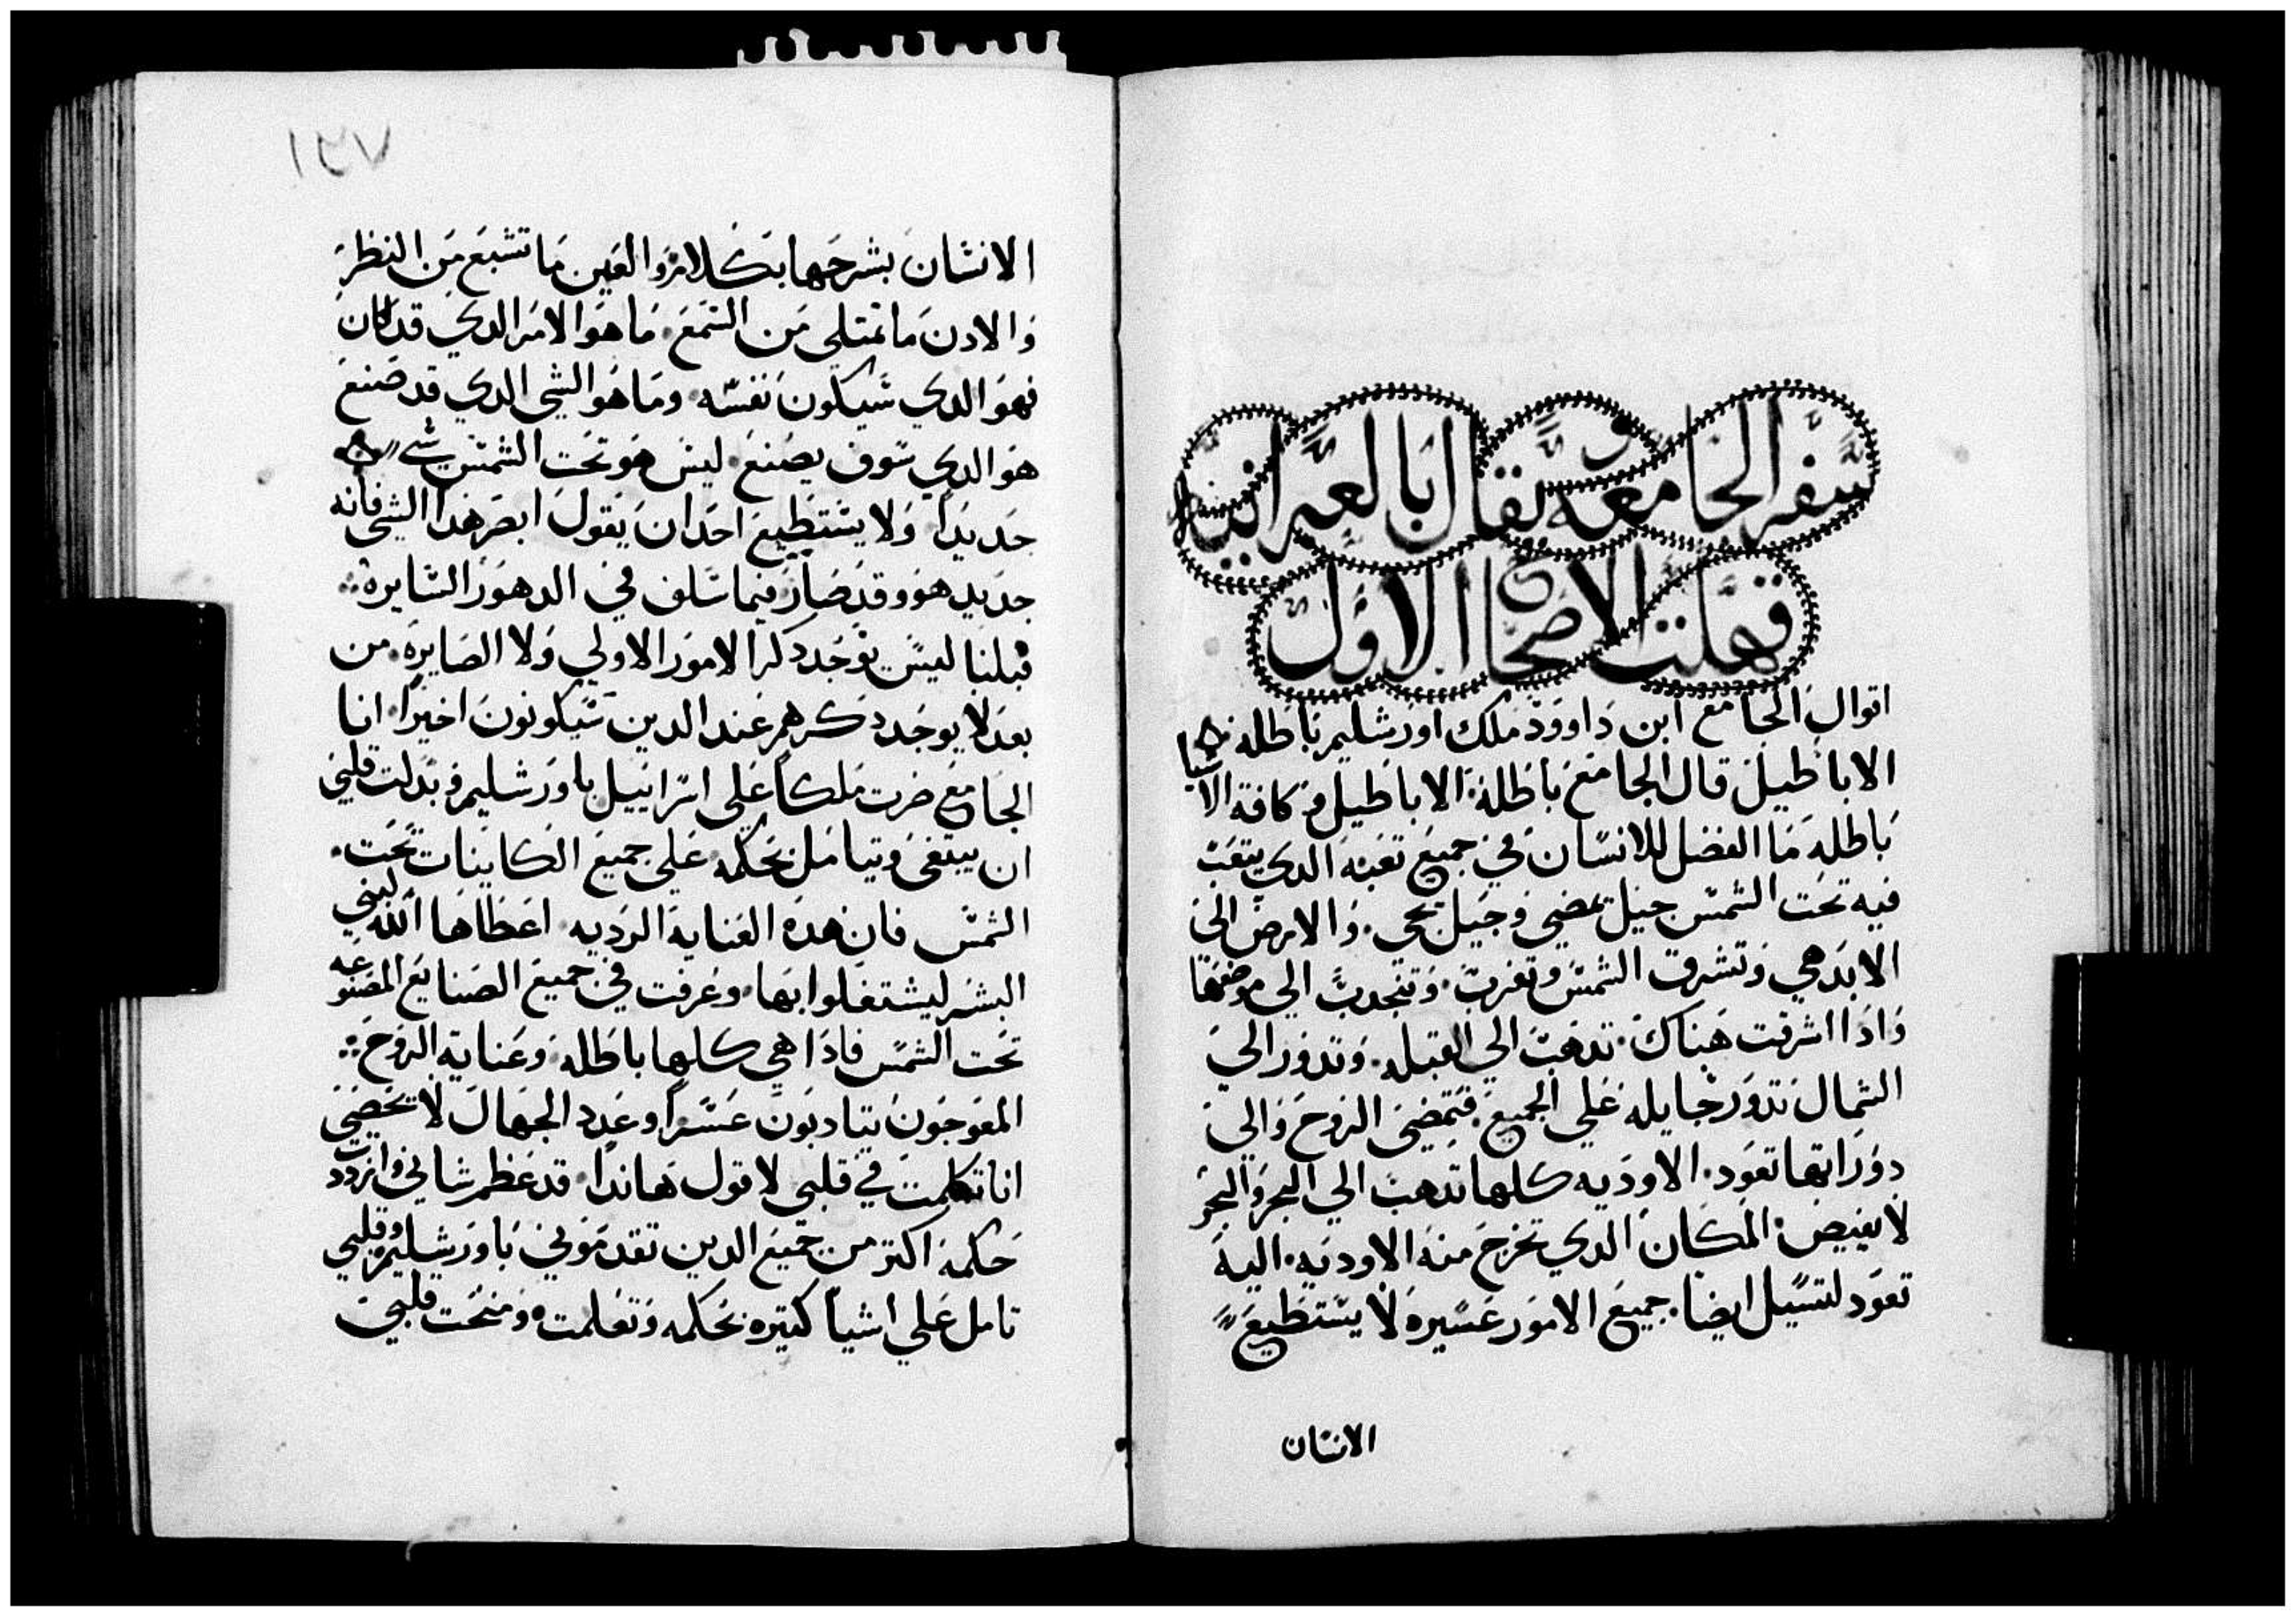 سفر الجامعه يقال بالعبرانيه
قهلت الاصحاح الاول
اقوال الجامع ابن داوود ملك اورشليم باطله
الاباطيل قال الجامع باطلة الاباطيل و كافة الاشيا
باطله ما الفضل للانسان في جميع تعبه الدي يتعب
فيه تحت الشمس جيل يمضي وجيل يجي والارض الي
الابد هي وتشرق الشمس وتغرب وتنجدب الي موضعها
واذا اشرقت هناك تدهب الي القبله وتدور الي
الشمال تدور جايله علي الجميع فتمضي الروح والي
دوراتها تعود الاوديه كلها تدهب الي البحر والبحر
لا يفيض المكان الدي تخرج منه الاوديه اليه
تعود لتسيل ايضا جميع الامور عسيرة لا يستطيع
الانسان
الانسان بشرحها بكلام والعين ما تشبع من النظر
والادن ما تمتلي من السمع ما هو الامر الدي قد كان
فهو الدي سيكون نفسه وما هو الشي الدي قد صنع
هو الدي سوف يصنع ليس هو تحت الشمس شي
جديدا ولا يستطيع احد ان يقول ابصر هدا الشي فانه
جديد هو وقد صار فيما سلف في الدهور السايره
قبلنا ليس يوجد دكر الامور الاولي ولا الصايره من
بعد لا يوجد دكرهم عند الدين سيكونون اخيرا انا
الجامع صرت ملكا علي اسراييل باورشليم وبدلت قلبي
ان يبتغي ويتامل بحكمه علي جميع الكاينات تحت
الشمس فان هده العناية الرديه اعطاها الله لبني
البشر ليشتغلوا بها وعرفت في جميع الصنايع المصنوعه
تحت الشمس فاذا هي كلها باطله وعناية الروح
المعوجون يتادبون عسرا وعدد الجهال لا يحصي
انا تكلمت في قلبي لاقول هاندا قد عظم شاني وازددت
حكمة اكتر من جميع الدين تقدموني باورشليم وقلبي
تامل علي اشيا كتيره بحكمه وتعلمت ومنحت قلبي